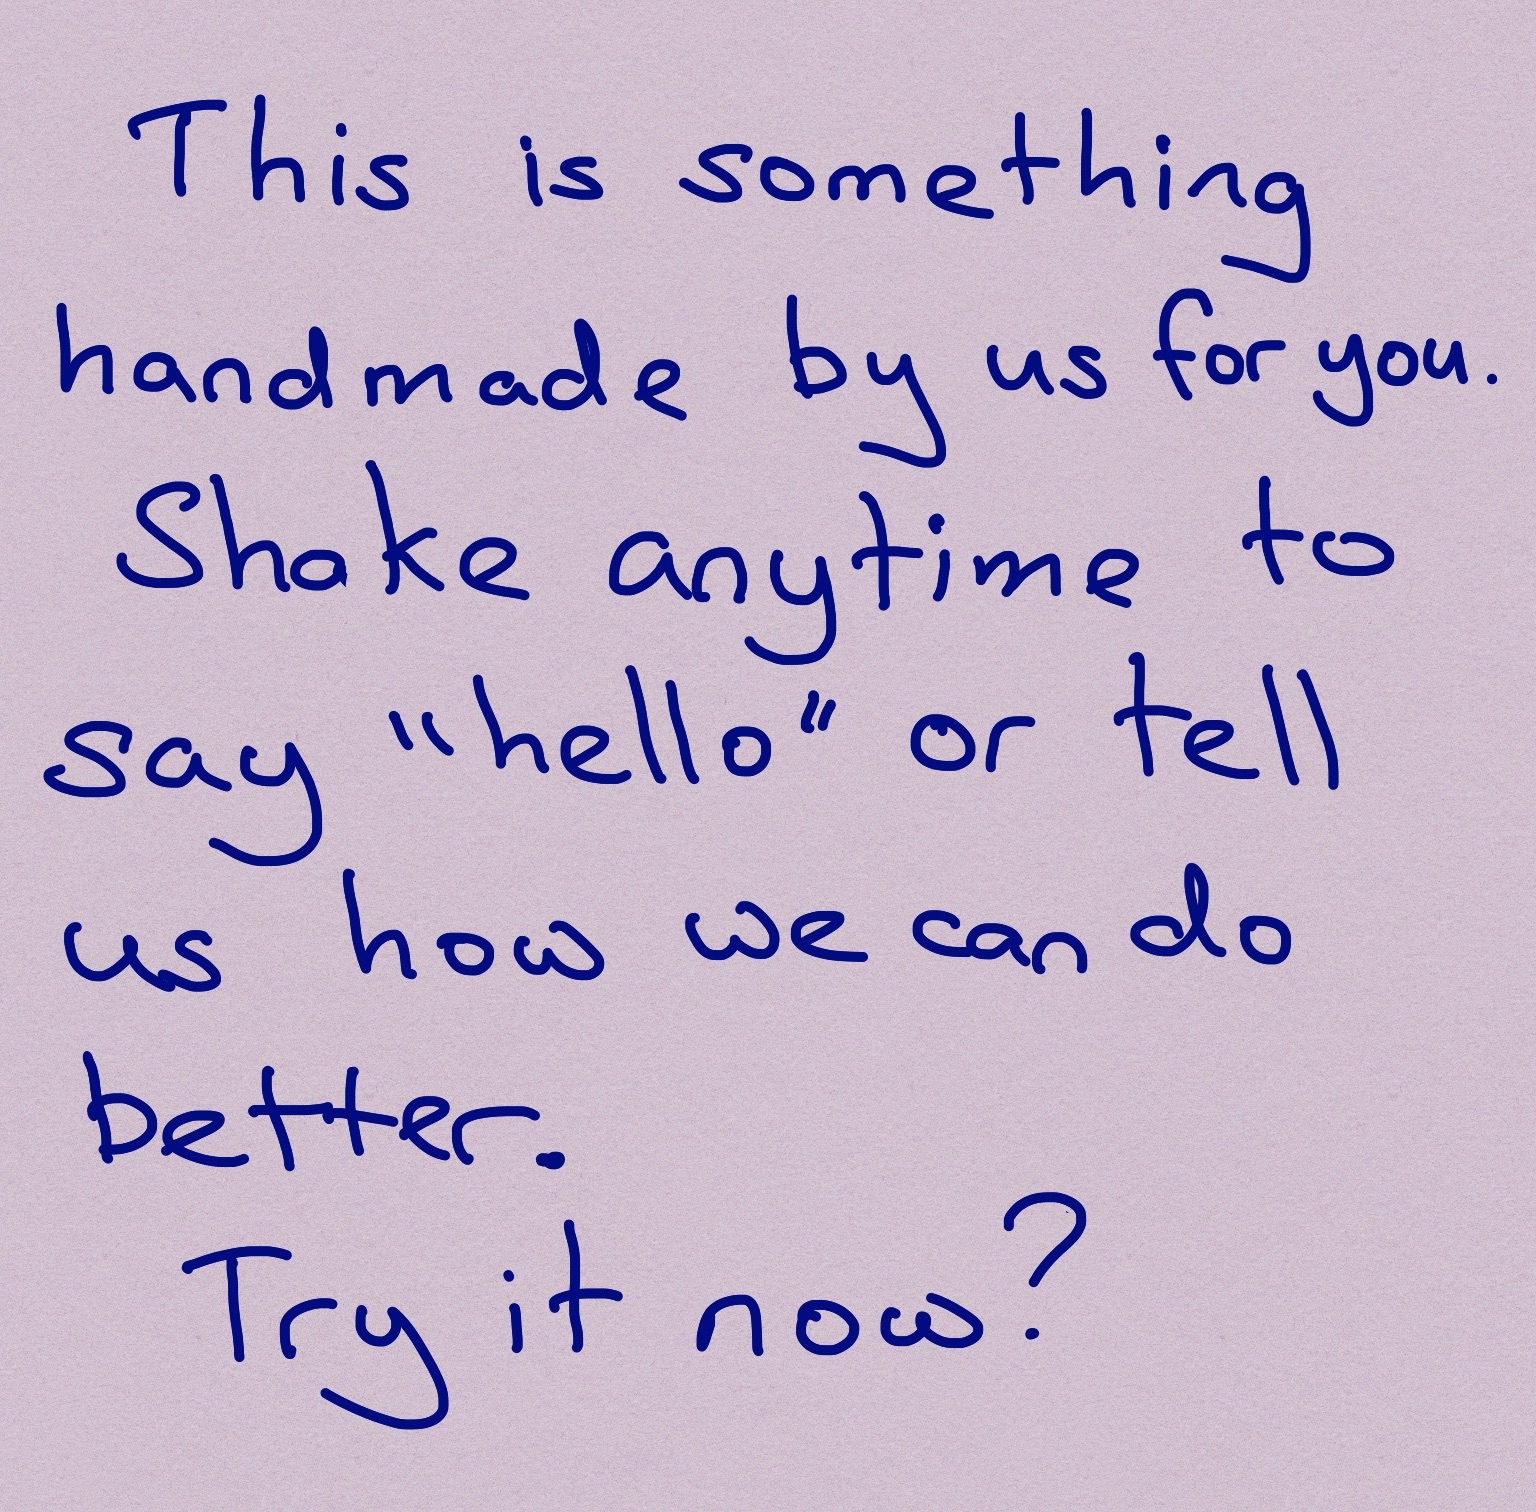 This is something
handmade by us for you.
Shake anytime to
say "hello" or tell
us how we can do
better.
Try it now?